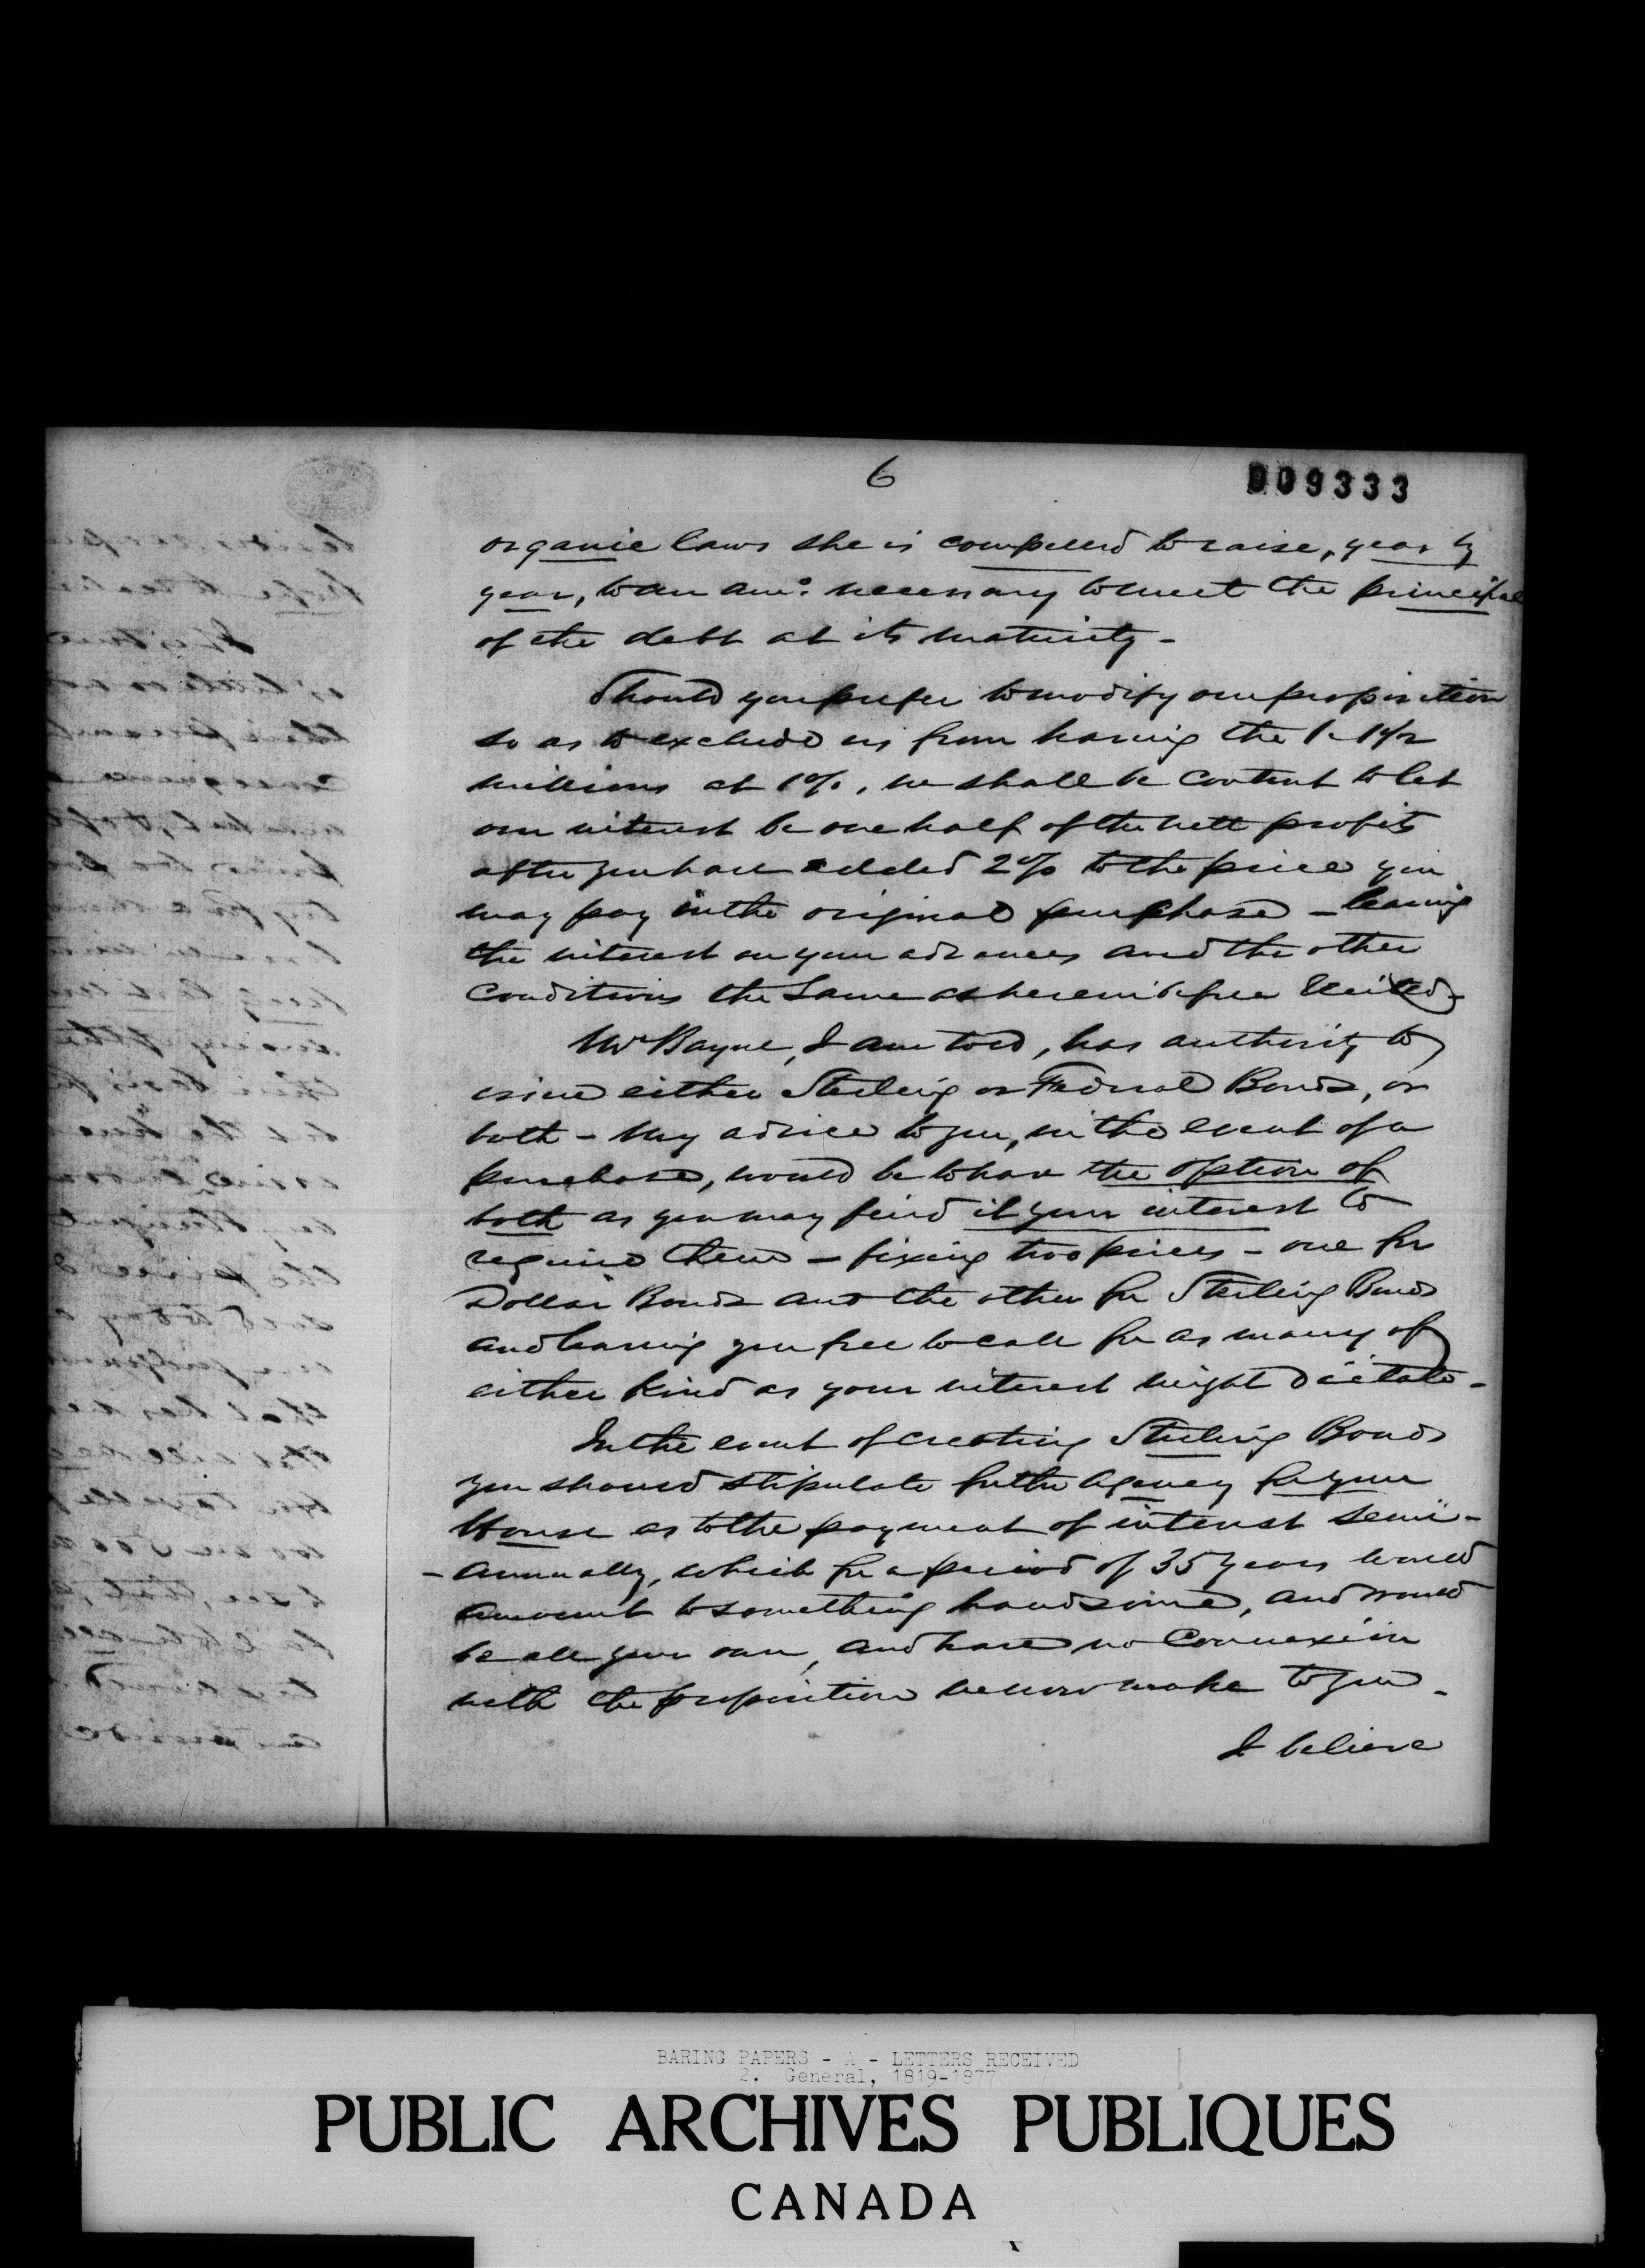 6
009333
organic laws she is compelled to raise, year by
year, to an amo: necessary to meet the principal
of the debt at its maturity -
Should you prefer to modify our proposition
so as to exclude us from having the
millions at 1%, we shall be content to let
our interest be one half of the nett profits
after you have added 2% to the price you
may pay in the original purchase - leaving
the interest on your advances and the other
conditions the same as hereinbefore
Mr Bayne, I am told, has authority to
issue either Sterling or Federal Bonds, or
both - My advice to you, in the event of a
purchase, would be to have the option of
both as you may find it your interest to
require them - fixing two prices - one for
Dollar Bonds and the other for Sterling Bonds
and leaving you free to call for as many of
either kind as your interest might dictate -
In the event of creating Sterling Bonds
you should stipulate for the Agency for your
House as to the payment of interest semi-
-annually, which for a period of 35 years would
amount to something handsome, and would
be all your own, and have no Connexion
with the proposition we now make to you -
I believe
BARING PAPERS - A - LETTERS RECEIVED
2. General, 1819-1877
PUBLIC ARCHIVES PUBLIQUES
CANADA